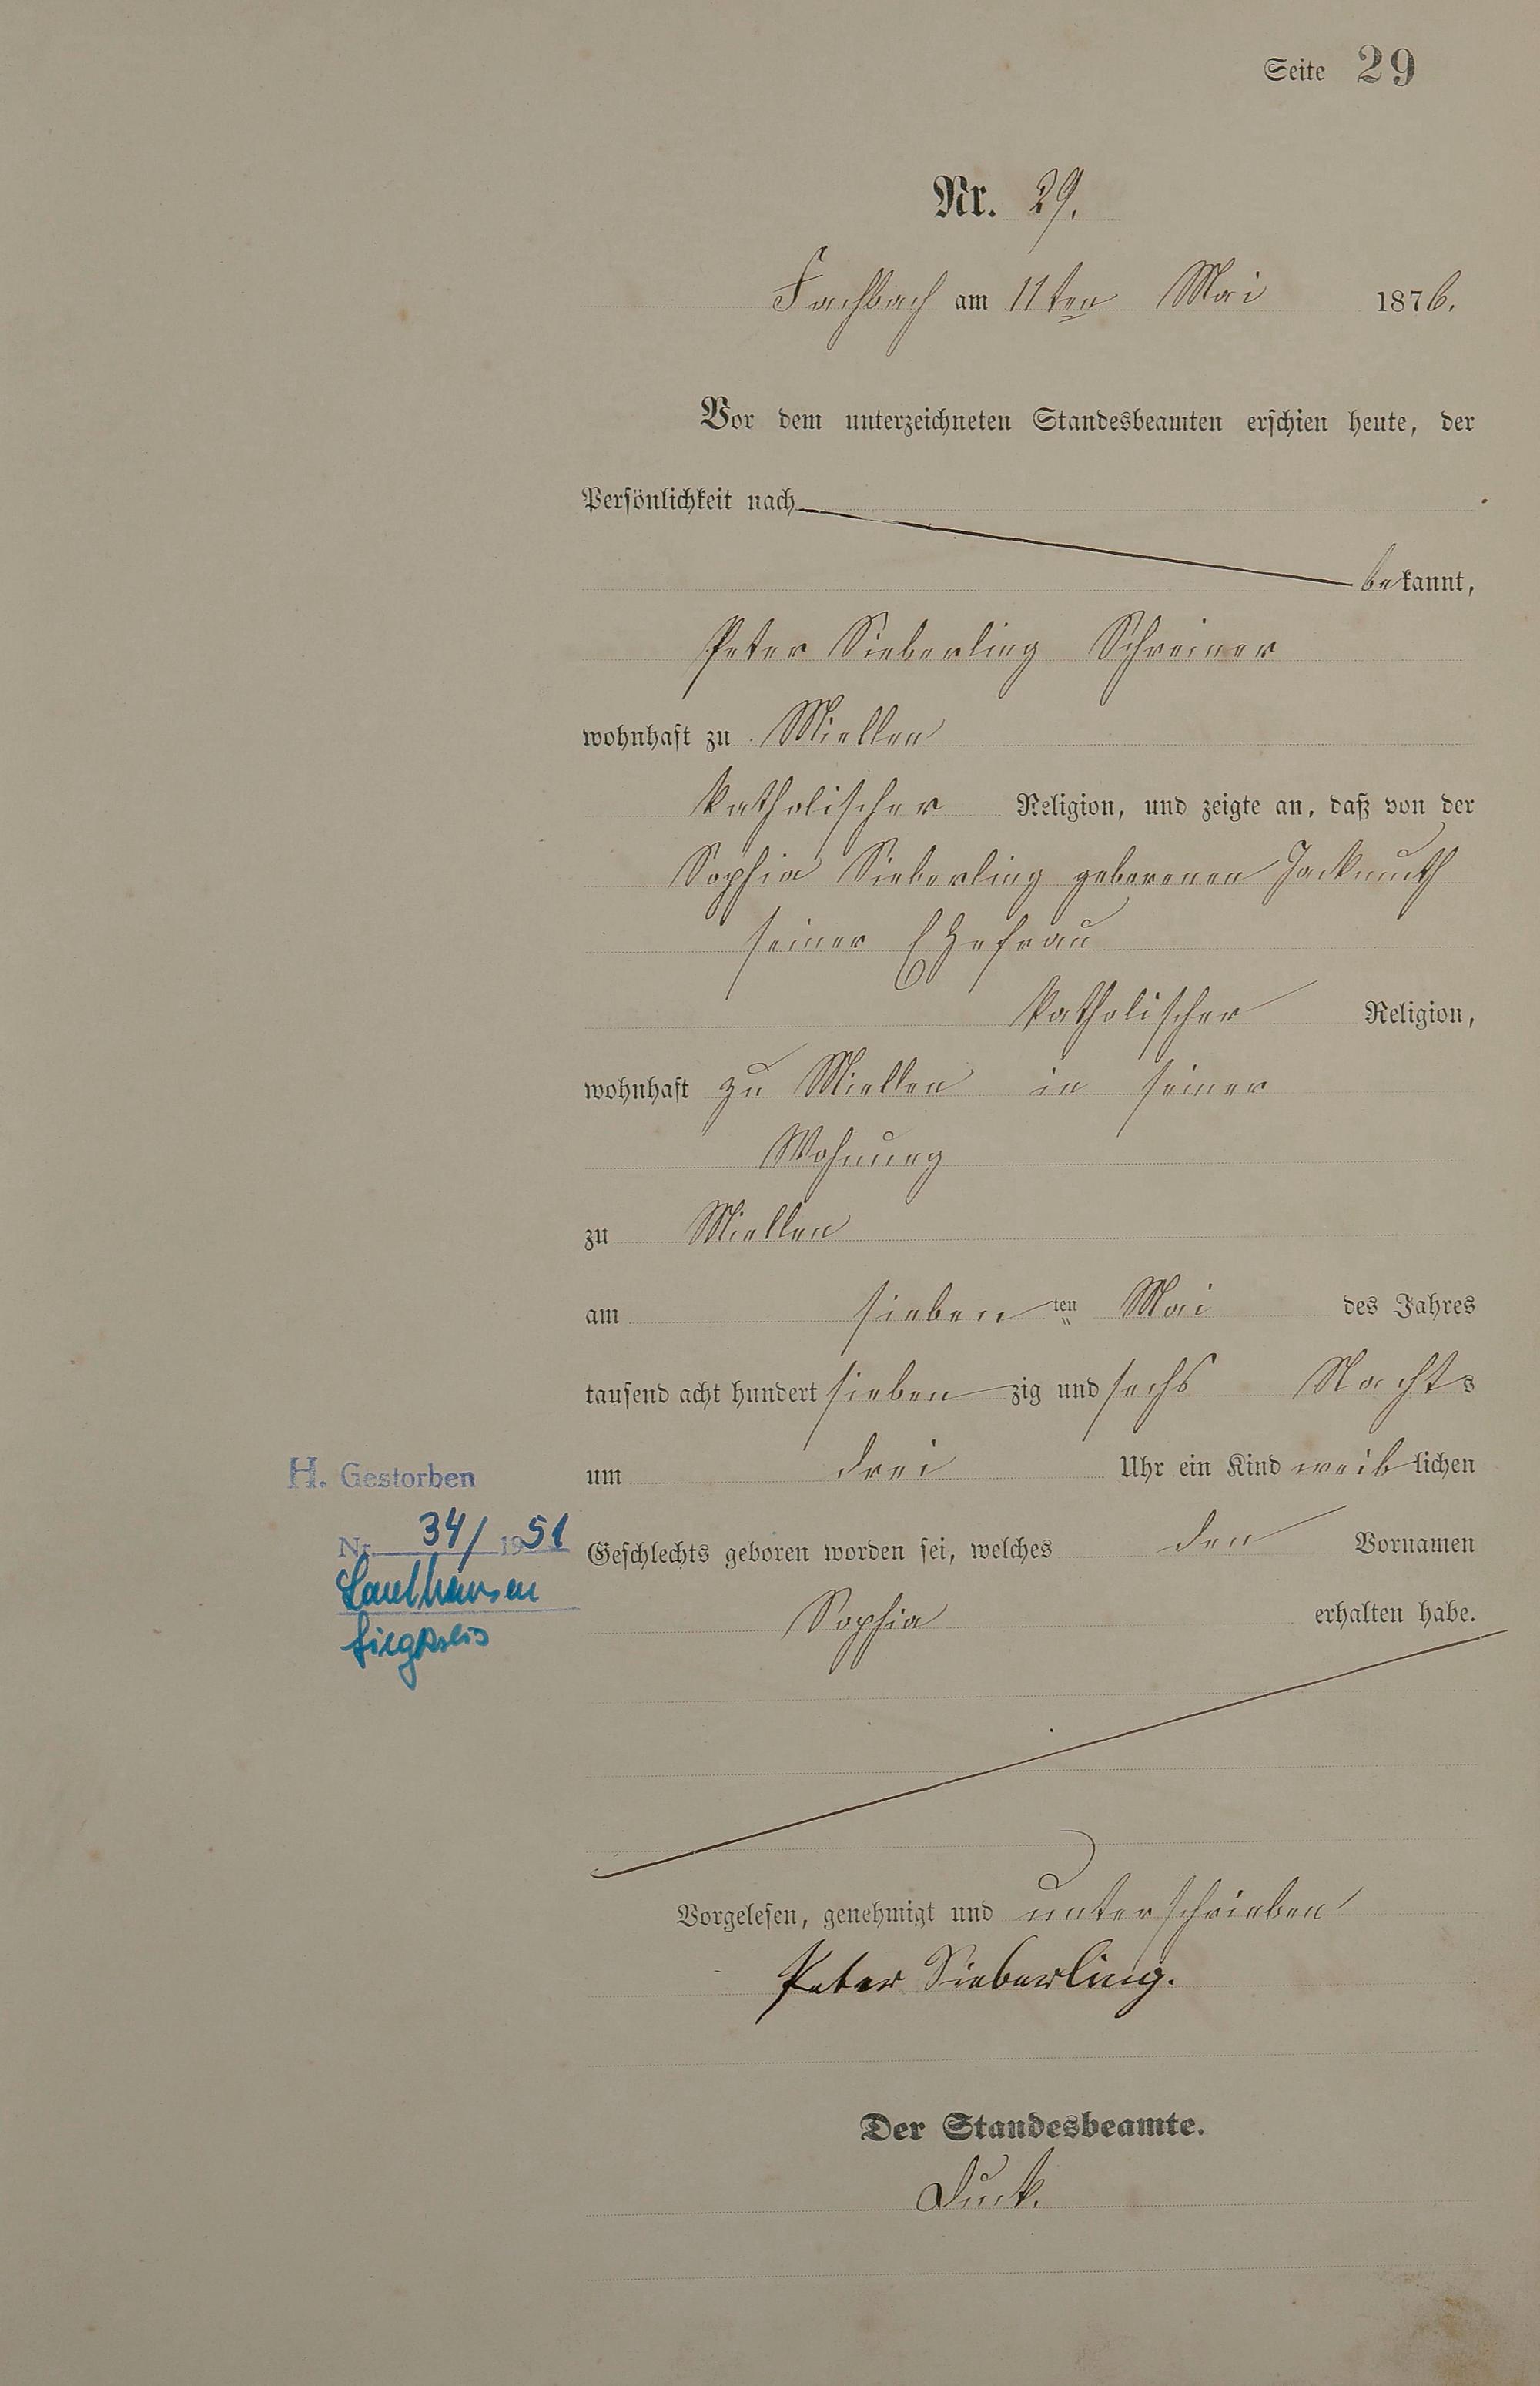 Seite 29
Nr. 29.
Fachbach am 11ten Mai 1876.
Vor dem unterzeichneten Standesbeamten erschien heute, der
Persönlichkeit nach
bekannt,
Peter Sieberling Schreiner
wohnhaft zu Miellen
katholischer Religion, und zeigte an, daß von der
Sophia Sieberling geborenen Jackmuth
seiner Ehefrau
katholischer Religion,
wohnhaft zu Miellen in seiner
Wohnung
zu Miellen
am sieben ten Mai des Jahres
tausend acht hundert sieben zig und sechs Nachts
um drei Uhr ein Kind weiblichen
Geschlechts geboren worden sei, welches den Vornamen
Sophia erhalten habe.
H. Gestorben
Nr. 34/1951
Lauthausen
Siegkreis
Vorgelesen, genehmigt und unterschrieben
Peter Sieberling.
Der Standesbeamte.
Duck.